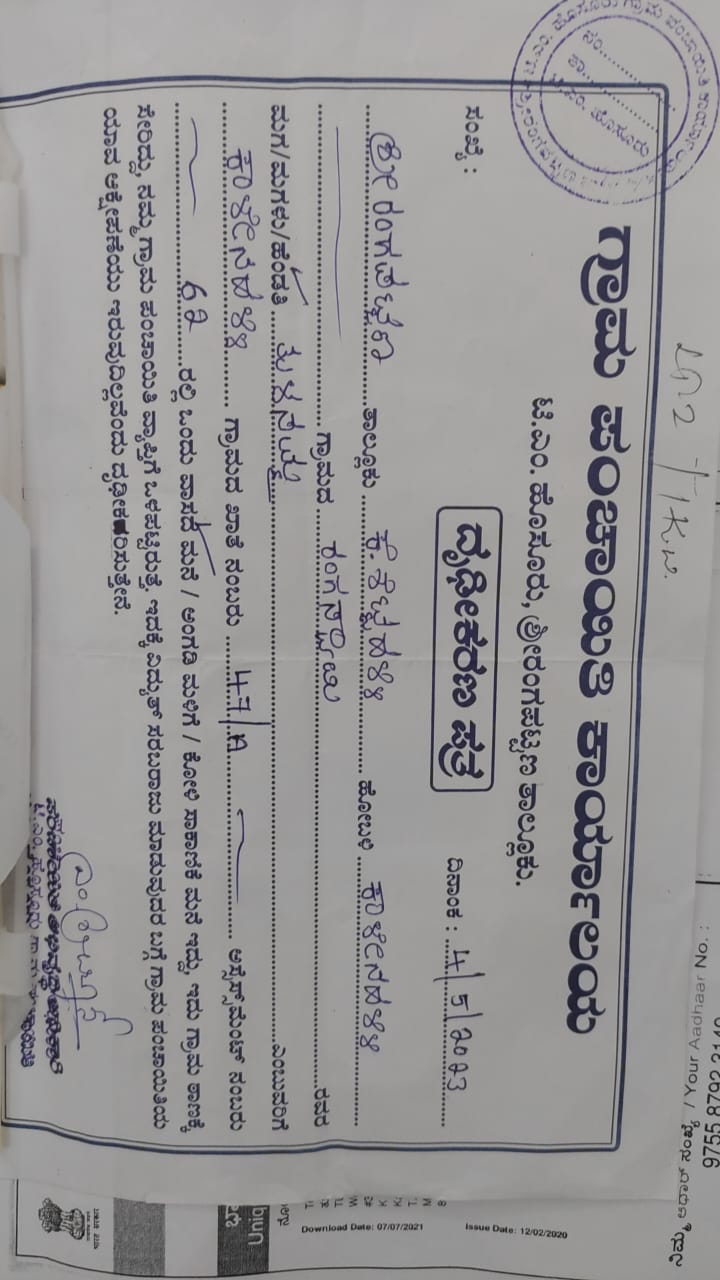 LT2 -/1K.W.
ಗ್ರಾಮ ಪಂಚಾಯಿತಿ ಕಾರ್ಯಾಲಯ
ಟಿ.ಎಂ. ಹೊಸೂರು, ಶ್ರೀರಂಗಪಟ್ಟಣ ತಾಲ್ಲೂಕು.
ದೃಢೀಕರಣ ಪತ್ರ
ಸಂಖ್ಯೆ : ದಿನಾಂಕ : 4/5/2023
ಶ್ರೀರಂಗಪಟ್ಟಣ ತಾಲ್ಲೂಕು ಕೆ. ಶೆಟ್ಟಹಳ್ಳಿ ಹೋಬಳಿ ಕಾಳೇನಹಳ್ಳಿ
ಗ್ರಾಮದ ರವರ
ಮಗ/ಮಗಳು/ಹೆಂಡತಿ ಎಂಬುವರಿಗೆ
ಕಾಳೇನಹಳ್ಳಿ ಗ್ರಾಮದ ಖಾತೆ ನಂಬರು 47/A ಅಸೆಸ್ಮೆಂಟ್ ನಂಬರು
62 ರಲ್ಲಿ ಒಂದು ವಾಸದ ಮನೆ / ಅಂಗಡಿ ಮಳಿಗೆ / ಕೋಳಿ ಸಾಕಾಣಿಕೆ ಮನೆ ಇದ್ದು, ಇದು ಗ್ರಾಮ ಠಾಣಕ್ಕೆ
ಸೇರಿದ್ದು, ನಮ್ಮ ಗ್ರಾಮ ಪಂಚಾಯಿತಿ ವ್ಯಾಪ್ತಿಗೆ ಒಳಪಟ್ಟಿರುತ್ತೆ. ಇದಕ್ಕೆ ವಿದ್ಯುತ್ ಸರಬರಾಜು ಮಾಡುವುದರ ಬಗ್ಗೆ ಗ್ರಾಮ ಪಂಚಾಯಿತಿಯ
ಯಾವ ಆಕ್ಷೇಪಣೆಯು ಇರುವುದಿಲ್ಲವೆಂದು ದೃಢೀಕರಿಸುತ್ತೇನೆ.
ನಿಮ್ಮ ಆಧಾರ್ ಸಂಖ್ಯೆ / Your Aadhaar No. :
9755 8792
Download Date: 07/07/2021
Issue Date: 12/02/2020